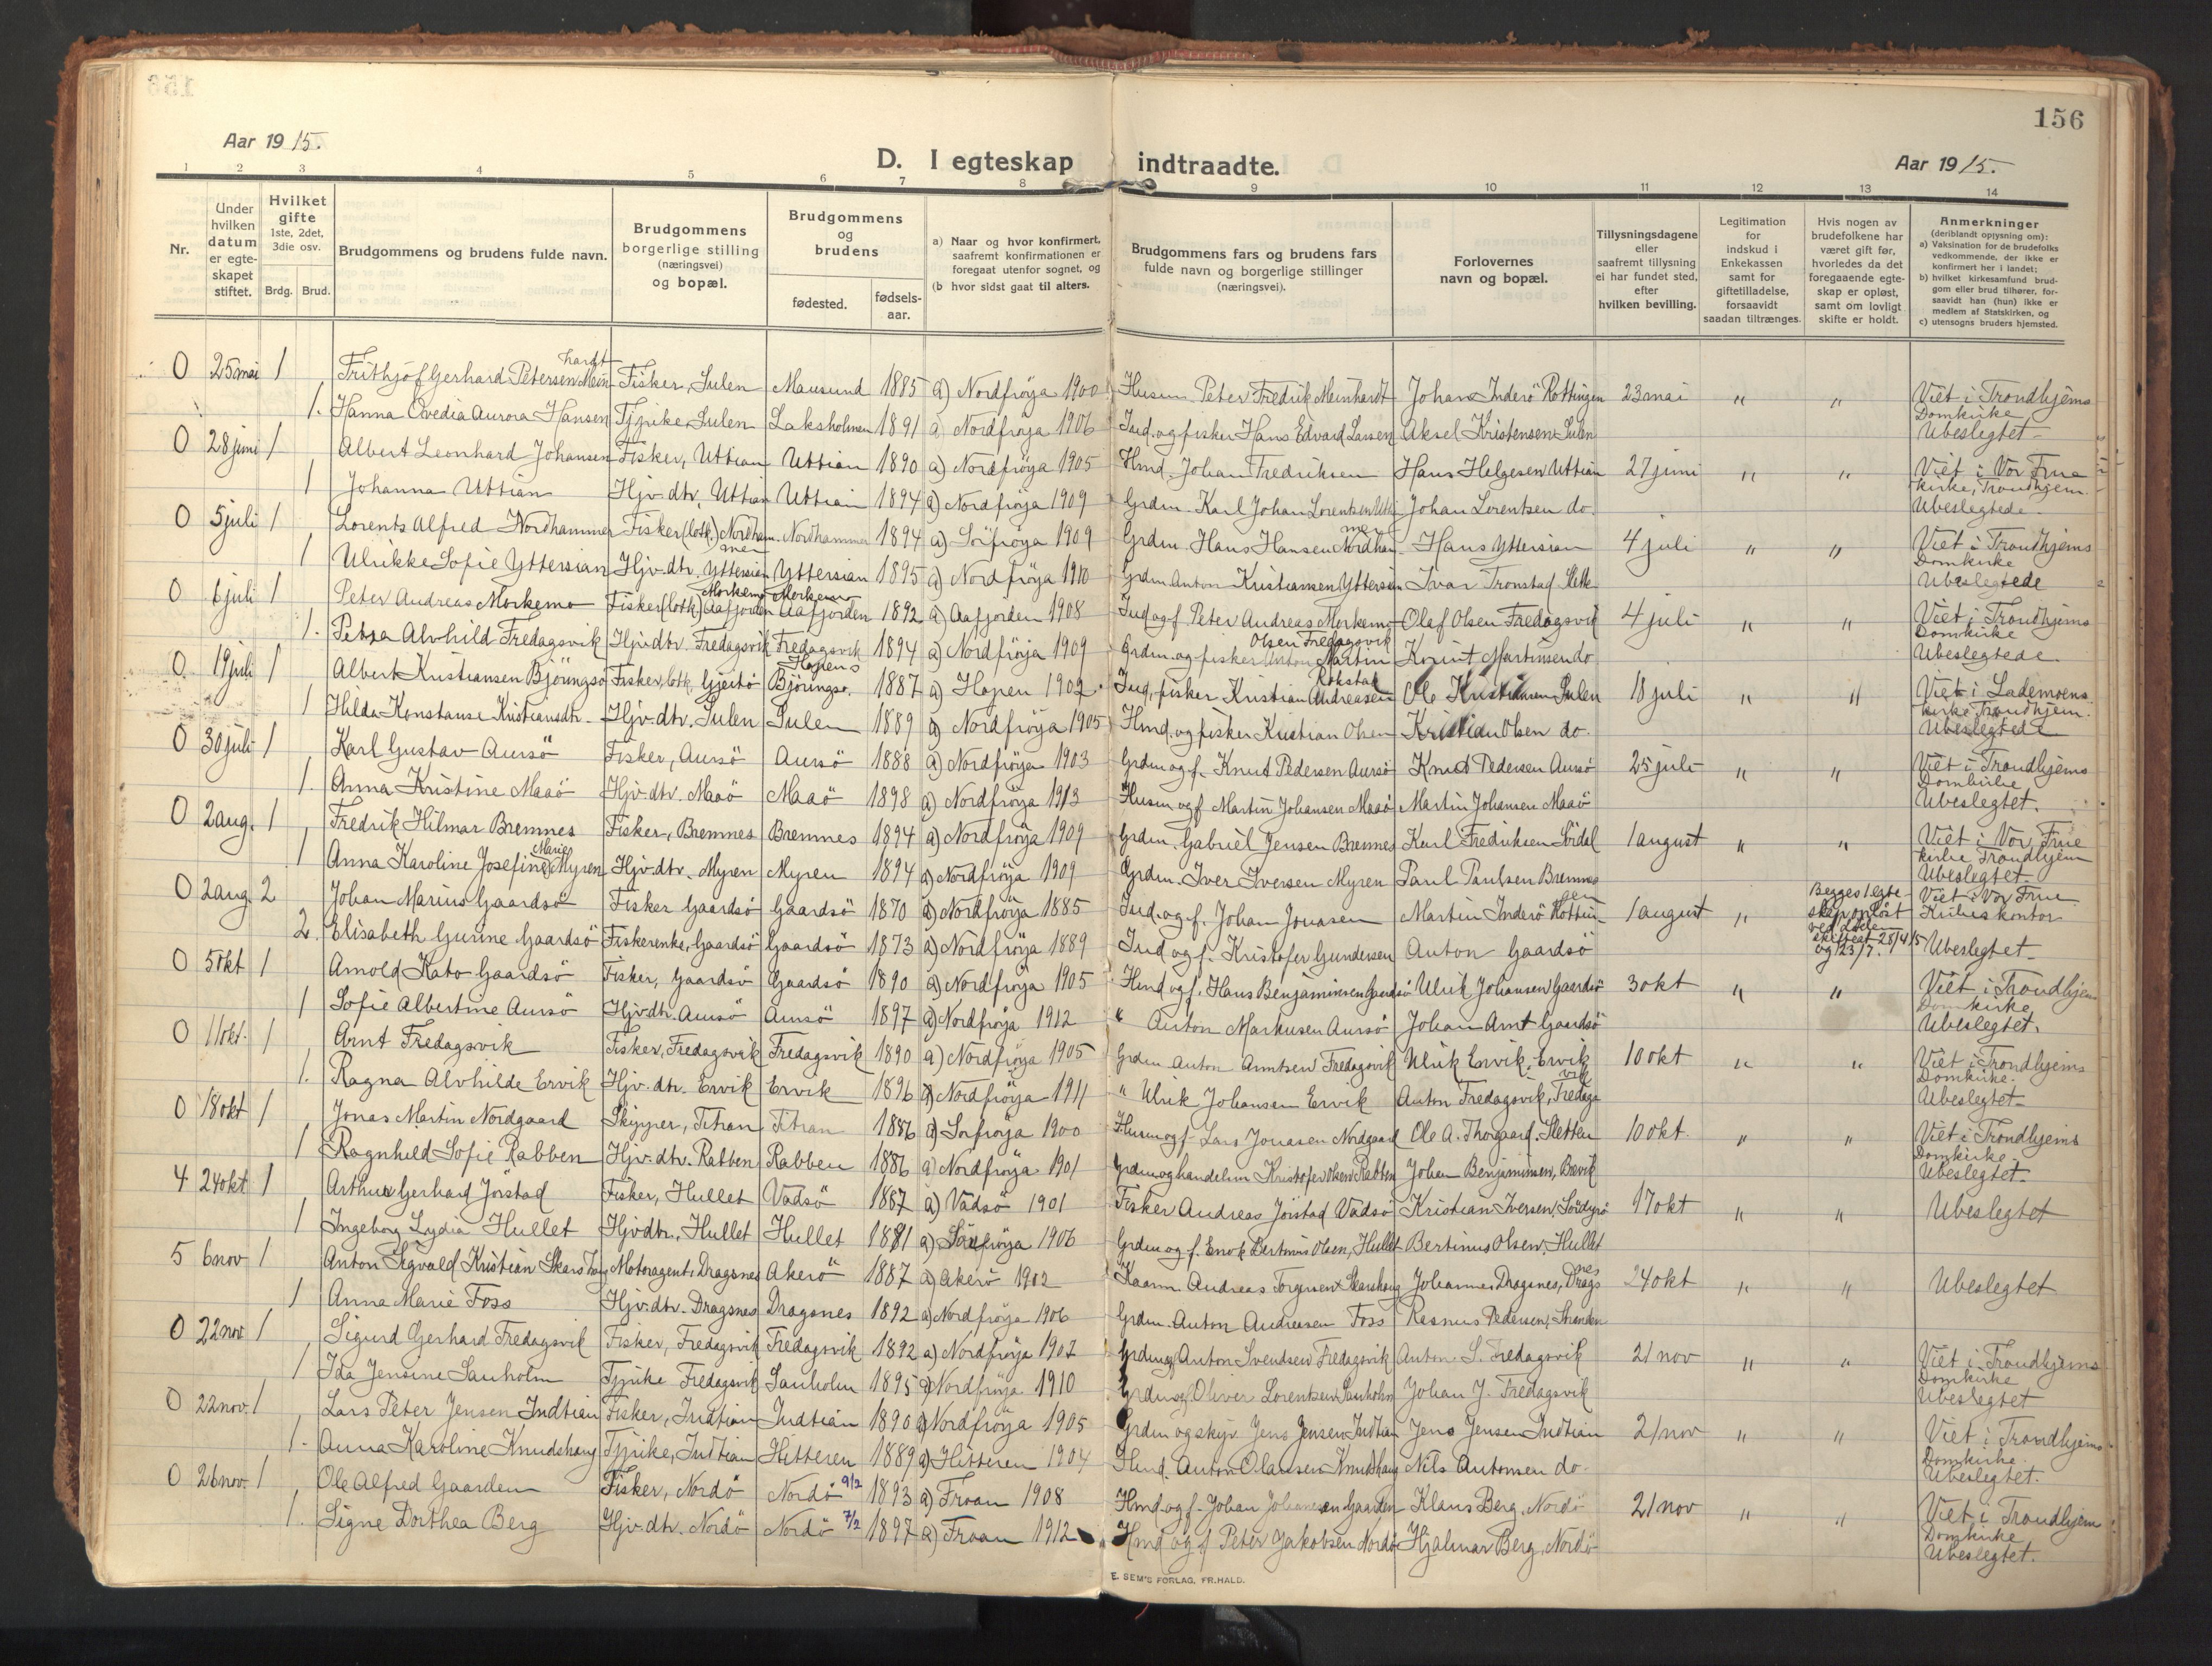 156
Aar 1915.
D. I egteskap indtraadte.
Aar 1915.
1 2 3 4 5 6 7 8 9 10 11 12 13 14
Nr.
Under hvilken datum er egte-skapet stiftet.
Hvilket gifte 1ste, 2det, 3die osv.
Brdg. Brud.
Brudgommens og brudens fulde navn.
Brudgommens borgerlige stilling (næringsvei) og bopæl.
Brudgommens og brudens
fødested.
fødsels-aar.
a) Naar og hvor konfirmert, saafremt konfirmationen er foregaat utenfor sognet, og
(b hvor sidst gaat til alters.
Brudgommens fars og brudens fars fulde navn og borgerlige stillinger (næringsvei).
Forlovernes navn og bopæl.
Tillysningsdagene eller saafremt tillysning ei har fundet sted, efter hvilken bevilling.
Legitimation for indskud i Enkekassen samt for giftetilladelse, forsaavidt saadan tiltrænges.
Hvis nogen av brudefolkene har været gift før, hvorledes da det foregaaende egte-skap er opløst, samt om lovligt skifte er holdt.
Anmerkninger (deriblandt opysning om):
a) Vaksination for de brudefolks vedkommende, der ikke er konfirmert her i landet;
b) hvilket kirkesamfund brud-gom eller brud tilhører, for-saavidt han (hun) ikke er medlem af Statskirken, og
c) utensogns bruders hjemsted.
0 25 mai 1 Frithjof Gerhard Petersen Meinhardt Fisker, Sulen Mausund 1885 a) Nordfröya 1900 Husm. Peter Fredrik Meinhardt Johan Inderö Rottingen 23 mai " " Viet i Trondhjems Domkirke
1. Hanna Ovedia Aurora Hansen Tjpike, Sulen Laksholmen 1891 a) Nordfröya 1906 Ind. og fisker Hans Edvard Larsen Aksel Kristensen Sulen Ubeslegtet
0 28 juni 1 Albert Leonhard Johansen Fisker, Uttian Uttian 1890 a) Nordfröya 1905 Hmd. Johan Fredriksen Hans Helgesen Uttian 27 juni " " Viet i Vor Frue kirke, Trondhjem.
1 Johanna Uttian Hjv. dtr. Uttian Uttian 1894 a) Nordfröya 1909 Grdm. Karl Johan Lorentsen Utti Johan Lorentsen do. Ubeslegtede
0 5 juli 1 Lorents Alfred Nordhammer Fisker (lotk.) Nordhammer Nordhammer 1894 a) Sörfröya 1909 Grdm. Hans Hansen Nordhammer Hans Yttersian 4 juli " " Viet i Trondhjems Domkirke
1 Ulrikke Sofie Yttersian Hjv. dtr. Yttersian Yttersian 1895 a) Nordfröya 1910 Grdm. Anton Kristiansen Yttersian Ivar Tronstad Slette Ubeslegtede
0 6 juli 1 Peter Andreas Morkemo Fisker (lotk) Morkemo Aafjorden Morkemo Aafjorden 1892 a) Aafjorden 1908 Ind og f. Peter Andreas Morkemo Olaf Olsen Fredagsvik 4 juli " " Viet i Trondhjems Domkirke
1. Petra Alvhild Fredagsvik Hjv. dtr. Fredagsvik Fredagsvik 1894 a) Nordfröya 1909 Grdm. og fisker Anton Martin Olsen Fredagsvik Kornt Martinsen do Ubeslegtede
0. 19 juli 1 Albert Kristiansen Björingsö Fisker, lotk. Gjeitö Hopens Björingsö. 1887 a) Hopen 1902. Ind. fisker Kristian Andreasen Rokstad Ole Kristiansen Sulen 18 juli " " Viet i Lademoens kirke Trondhjem.
1 Hilda Konstanse Kristiansdtr. Hjv. dtr. Sulen Sulen 1889 a) Nordfröya 1905 Hmd. og fisker Kristian Olsen Kristian Olsen do. Ubeslegtede
0 30 juli 1 Karl Gustav Aursö Fisker, Aursö Aursö 1888 a) Nordfröya 1903 Grdm og f. Knut Pedersen Aursö Knut Pedersen Aursö 25 juli " " Viet i Trondhjems Domkirke
1. Anna Kristine Maaö Hjv. dtr. Maaö Maaö 1898 a) Nordfröya 1913 Husm og f Martin Johansen Maaö Martin Johansen Maaö Ubeslegtet.
0 2 aug. 1 Fredrik Hilmar Bremnes Fisker, Bremnes Bremnes 1894 a) Nordfröya 1909 Grdm. Gabriel Jensen Bremnes Karl Fredriksen Sördal 1 august " " Viet i Vor Frue kirke Trondhjem
1 Anna Karoline Josefine Marie Myren Hjv. dtr. Myren Myren 1894 a) Nordfröya 1909 Grdm. Iver Iversen Myren Paul Paulsen Bremnes Ubeslegtet
0 2 aug. 2 Johan Marius Gaardsö Fisker Gaardsö Gaardsö 1870 a) Nordfröya 1885 Ind. og f. Johan Jonasen Martin Inderö Rottingen 1 august " Begges 1 egteskap oplöst ved döden skiftest. 28/4 15 og 23/7. Viet i Vor Frue Kirkes kontor
2. Elisabeth Gurine Gaardsö Fiskerenke, Gaardsö Gaardsö 1873 a) Nordfröya 1889 Ind og f. Kristofer Gundersen Anton Gaardsö Ubeslegtet
0 5 okt 1 Arnold Kato Gaardsö Fisker, Gaardsö Gaardsö 1890 a) Nordfröya 1905 Hmd og f. Hans Benjaminsen Gaardsö Ulrik Johansen Gaardsö 3 okt " " Viet i Trondhjem Domkirke
1 Sofie Albertine Aursö Hjv. dtr. Aursö Aursö 1897 a) Nordfröya 1912 " Anton Markusen Aursö Johan Arnt Gaardsö Ubeslegtet.
0 11 okt. 1 Arnt Fredagsvik Fisker, Fredagsvik Fredagsvik 1890 a) Nordfröya 1905 Grdm Anton Arntsen Fredagsvik Ulrik Ervik, Ervik 10 okt " " Viet i Trondhjems Domkirke.
1. Ragna Alvhilde Ervik Hjv. dtr. Ervik Ervik 1896 a) Nordfröya 1911 " Ulrik Johansen Ervik Anton Fredagsvik, Fredagsvik Ubeslegtet
0 18 okt 1 Jonas Martin Nordgaard Skipper, Titran Titran 1886 a) Sörfröya 1900 Husm og f. Lars Jonasen Nordgaard Ole A. Thorgaard. Sletten 10 okt. " " Viet i Trondhjems Domkirke
1 Ragnhild Sofie Rabben Hjv. dtr. Rabben Rabben 1886 a) Nordfröya 1901 Grdm og handelsm Kristofer Olsen Rabben Johan Benjaminsen, Bævik Ubeslegtet
4 24 okt 1 Arthur Gerhard Jörstad Fisker, Hullet Vadsö 1887 a) Vadsö 1901 Fisker Andreas Jörstad Vadsö Kristian Iversen, Sördyrö 17 okt " " Ubeslegtet
1 Ingeborg Lydia Hullet Hjv. dtr., Hullet Hullet 1881 a) Sörfröya 1906 Grdm og f. Enok Bertinus Olsen, Hullet Bertinus Olsen, Hullet
5 6 nov 1 Anton Sigvald Kristian Skarshaug Motoragent, Dragsnes Akerö 1887 a) Akerö 1902 Kaarm Andreas Torgersen Skarshaug Johannes Dragsnes, Dragsnes 24 okt " " Ubeslegtet
1 Anna Marie Foss Hjv. dtr. Dragsnes Dragsnes 1892 a) Nordfröya 1906 Grdm. Anton Andreasen Foss Rasmus Pedersen, Stranden
0 22 nov 1 Sigurd Gerhard Fredagsvik Fisker, Fredagsvik Fredagsvik 1892 a) Nordfröya 1907 Grdm og Anton Svendsen Fredagsvik Anton S. Fredagsvik 21 nov " " Viet i Trondhjems Domkirke
1 Ida Jensine Sauholm Tjpike Fredagsvik Sauholm 1895 a) Nordfröya 1910 Grdm og Oliver Lorentsen Sauholm Johan J. Fredagsvik Ubeslegtet
0 22 nov. 1 Lars Peter Jensen Indtian Fisker, Indtian Indtian 1890 a) Nordfröya 1905 Grdm og skip. Jens Jensen Indtian Jens Jensen Indtian 21 nov " " Viet i Trondhjems Domkirke.
1. Anna Karoline Knudshaug Tjpike, Indtian Hitteren 1889 a) Hitteren 1904 Hmd. Anton Olausen Knudshaug Nils Antonsen do. Ubeslegtet.
0 26 nov. 1 Ole Alfred Gaarden Fisker, Nordö Nordö 9/2 1893 a) Froan 1908 Hmd. og f. Johan Johansen Gaarden Klaus Berg, Nordö 21 nov " " Viet i Trondhjem Domkirke
1. Signe Dorthea Berg Hjv. dtr. Nordö Nordö 7/2 1897 a) Froan 1912 Hmd og f Peter Jakobsen Nordö Hjalmar Berg, Nordö Ubeslegtet.
E. SEM'S FORLAG, FR.HALD.